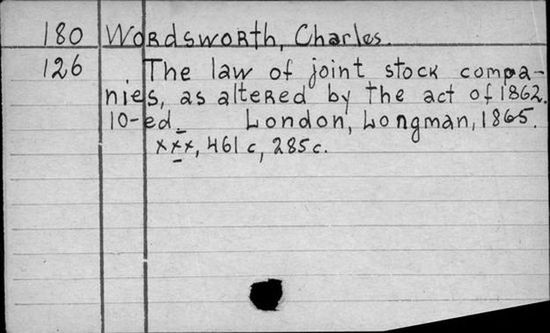 180 Wordsworth, Charles.
126 The law of joint stock compa-
nies, as altered by the act of 1862.
10-ed. London, Longman, 1865.
xxx, 461 c, 285 c.